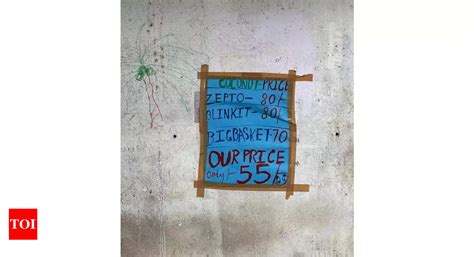 COCONUT PRICE
ZEPTO- 80/-
BLINKIT- 80/-
BIGBASKET-70
OUR PRICE
ONLY/- 55/
TOI